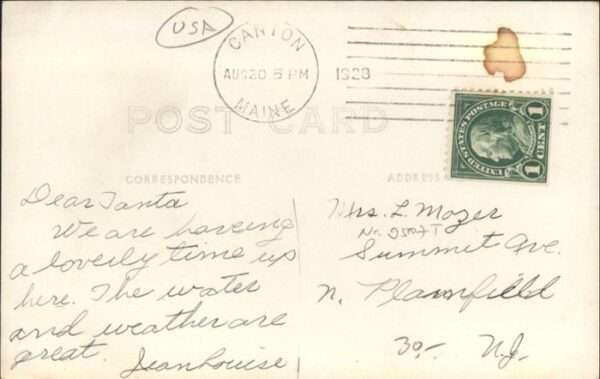 USA
CANTON
AUG 20 6 PM
1928
MAINE
POST CARD
CORRESPONDENCE
ADDRESS
UNITED STATES POSTAGE
1 1
CENT
Dear Tanta
We are having
a lovely time up
here. The water
and weather are
great. Jean Louise
Mrs. L. Mozer
Summit Ave.
n. Plainfield
30- N.J.